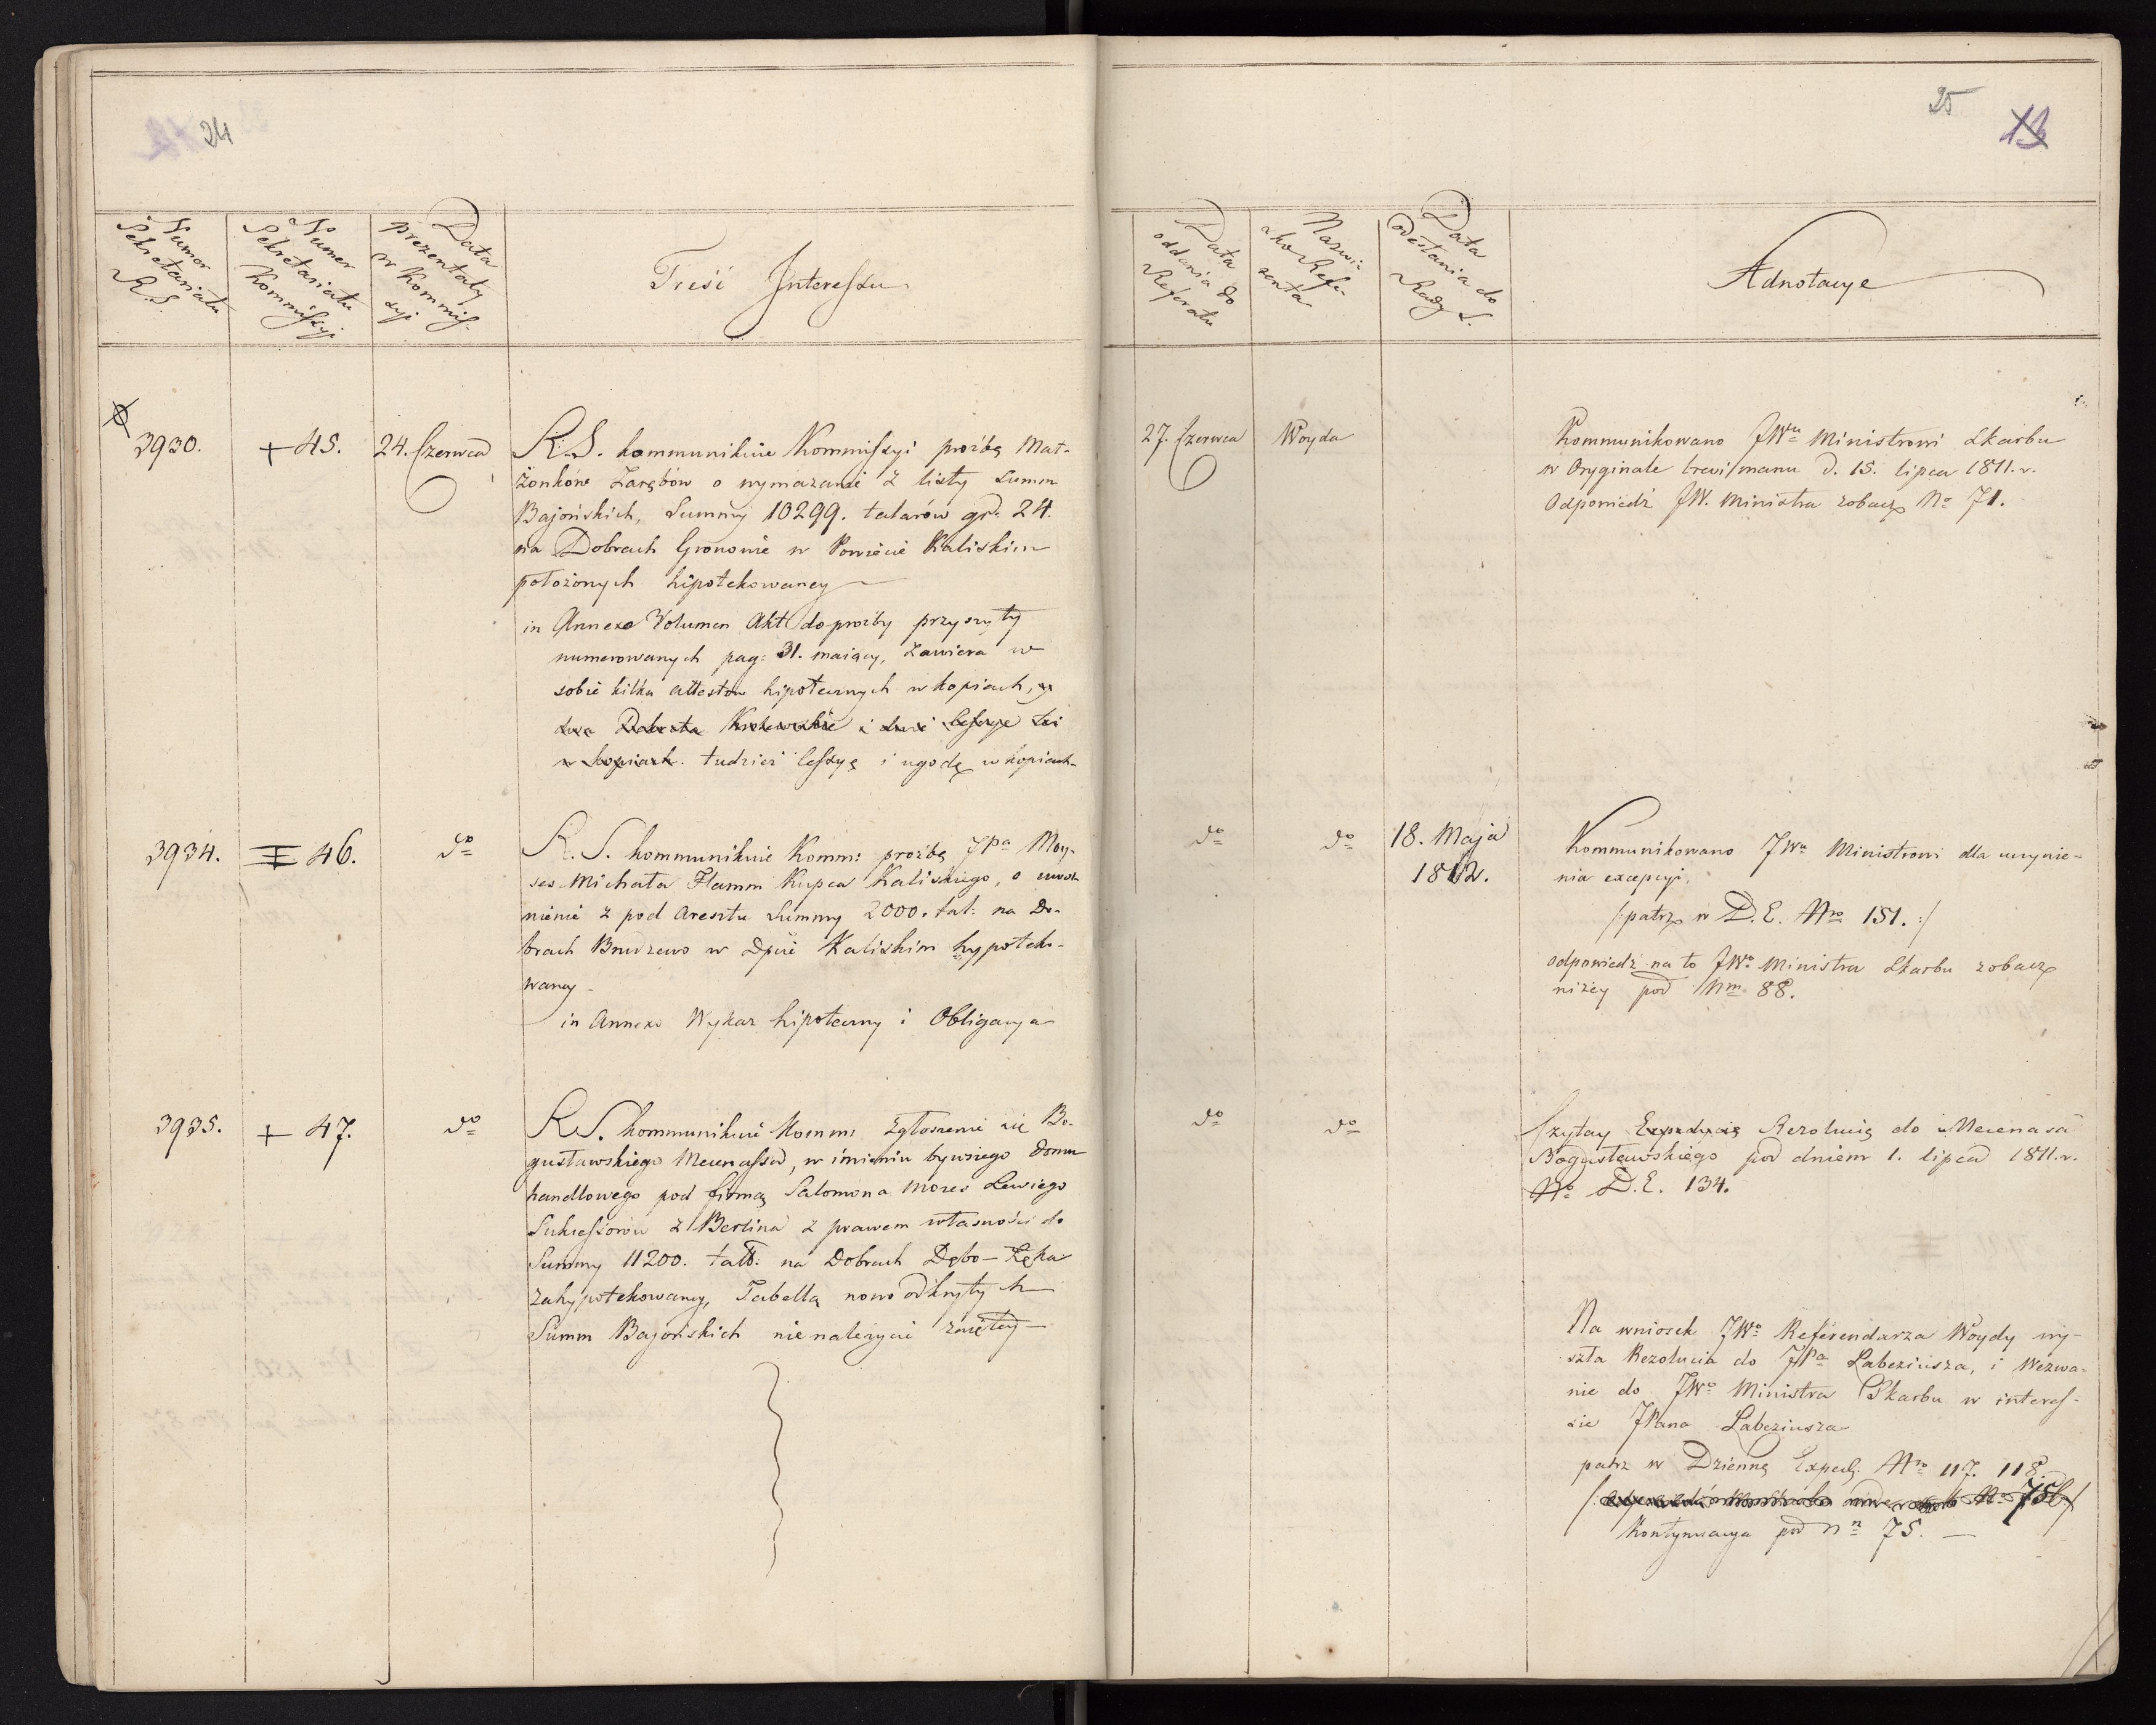 24
Numer Sekretariatu R.S.
Numer Sekretariatu Kommissyi
Data prezentaty w Kommissyi
Treść Interessu
3930.
+ 45.
24. Czerwca
R.S. kommunikuie Kommissyi proźbę Mał-
żonków Zarębów o wymazanie z listy Summ
Bajońskich, Summy 10299. talarów gr. 24.
na Dobrach Gronowie w Powiecie Kaliskim
położonych hipotekowaney
in Annexo Volumen Akt do proźby przyszyty
numerowanych pag: 31. maiący, zawiera w
sobie kilka attestów hipotecznych w kopiach,
dwa Dekreta i dwie Cessye też
w kopiach. tudzież Cessyę i ugodę w kopiach
3934.
46.
do
R.S. kommunikuie Komm: proźbę JPa Moy-
ses Michała Flamm Kupca Kaliskiego, o uwol
nienie z pod Aresztu Summy 2000. tal: na Do-
brach Brudzewo w Dpcie Kaliskim hypoteko-
waney
in Annexo Wykaz hipoteczny i Obligacya
3935.
+ 47.
do
R.S. kommunikuie Komm: zgłoszenie się Bo-
gusławskiego Mecenassa, w imieniu bywszego domu
handlowego pod firmą Salomona Mozes Lewiego
Sukcessorów z Berlina z prawem własności do
Summy 11200. tall: na Dobrach Dębo-Łęka
zahypotekowaney, Tabellą nowo odkrytych
Summ Bajońskich nienależycie zajętey
25
13
Data oddania do Referatu
Nazwisko Referenta
Data odesłania do Rady S.
Adnotacye
27. Czerwca
Woyda
Kommunikowano JWu Ministrowi Skarbu
w Oryginale brevi manu d. 15. lipca 1811. r.
Odpowiedź JW. Ministra zobacz No 71.
do
do
18. Maja
1812.
Kommunikowano JWu Ministrowi dla uczynie-
nia excepcyi.
/:patrz w D.E. Nro 151.:/
odpowiedź na to JWo Ministra Skarbu zobacz
niżey pod Nm 88.
do
do
Czytay Expedycią Rezolucią do Mecenasa
Bogusławskiego pod dniem 1. lipca 1811. r.
No D.E. 134.
Na wniosek JWo Referendarza Woydy wy-
szła Rezolucia do JPa Labeziusza, i Wezwa-
nie do JWo Ministra Skarbu w interes-
sie JPana Labeziusza
patrz w Dzienną Exped: Nro 117. 118.
No 75
Kontynuacya pod Nn 75. —